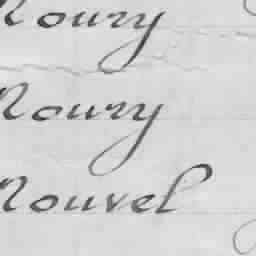 Noury
Noury
Nouvel